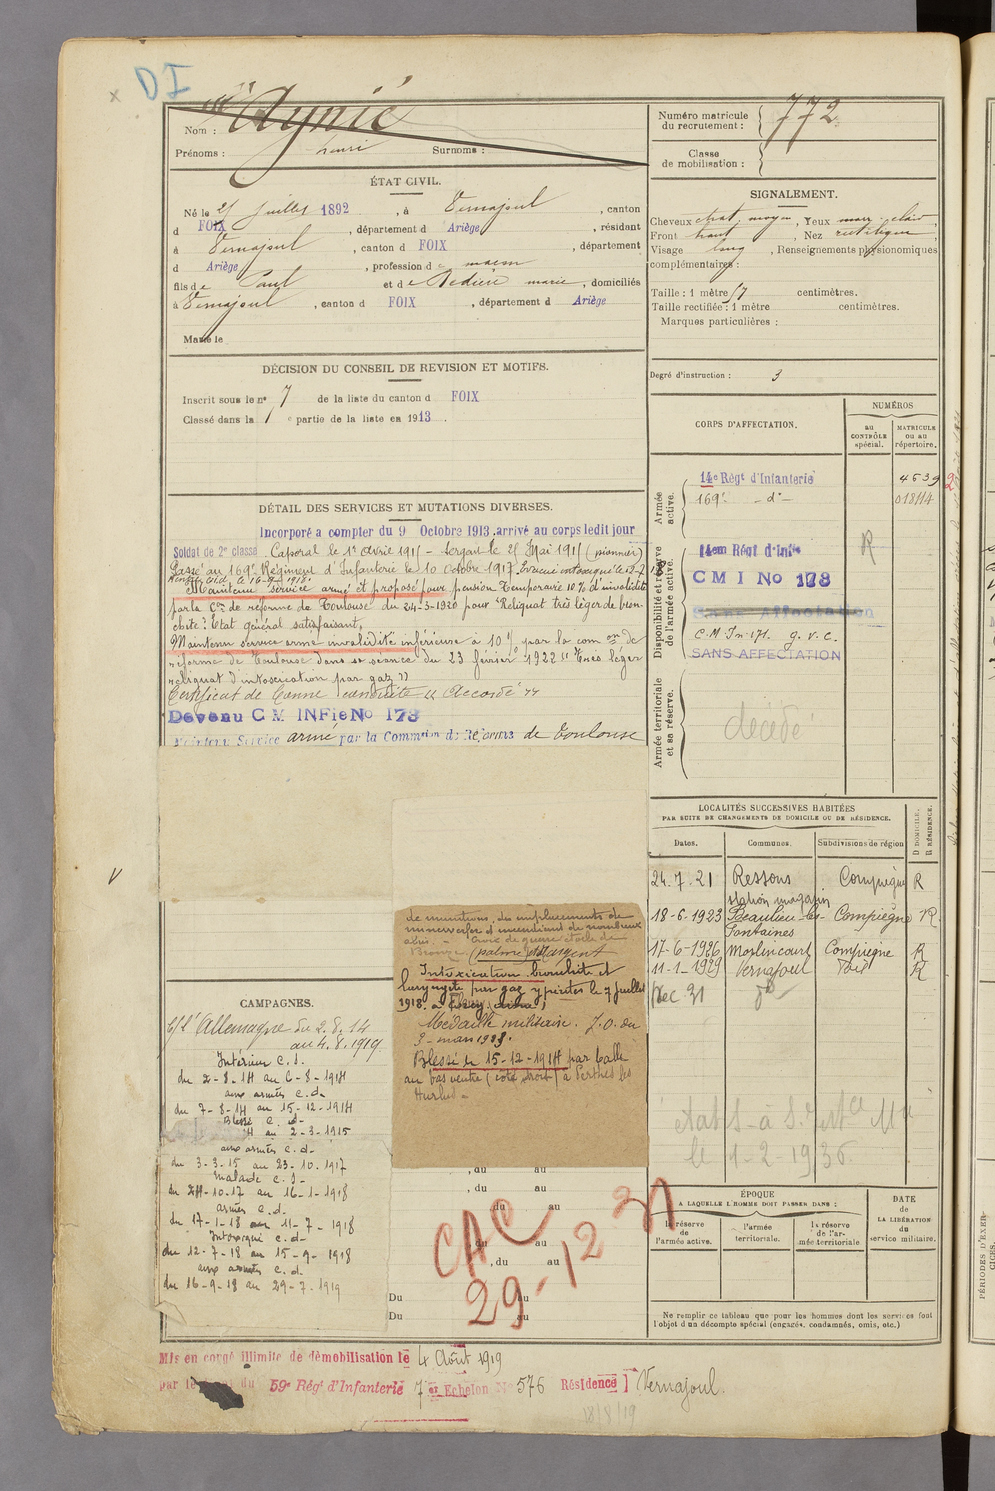 DI
Nom : Aynié
Prénoms : henri Surnoms :
Numéro matricule
du recrutement : 772
Classe
de mobilisation :
ÉTAT CIVIL.
Né le juillet 1892, à Vernajoul, canton
d FOIX, département d Ariège, résidant
à Vernajoul, canton d FOIX, département
d Ariège, profession de maçon
fils de Paul et de Dedieu marie, domiciliés
à Vernajoul, canton d FOIX, département d Ariège
Marié le
SIGNALEMENT.
Cheveux chat. moyen, Yeux marr. clair
Front haut, Nez rectiligne,
Visage long, Renseignements physionomiques
complémentaires :
Taille : 1 mètre 57 centimètres.
Taille rectifiée : 1 mètre centimètres.
Marques particulières :
Degré d'instruction : 3
DÉCISION DU CONSEIL DE REVISION ET MOTIFS.
Inscrit sous le n° 7 de la liste du canton d FOIX
Classé dans la 1e partie de la liste en 1913.
DÉTAIL DES SERVICES ET MUTATIONS DIVERSES.
Incorporé a compter du 9 Octobre 1913. arrivé au corps ledit jour
Soldat de 2e classe Caporal le 1er Avril 1915 - Sergent le 25 Mai 1915 (pionnier)
Passé au 169e Régiment d'Infanterie le 10 Octobre 1917. Evacué intoxiqué le
Rentré C.i.d. le 16-9-1918.
Maintenu service armé et proposé pour pension temporaire 10% d'invalidité
par la Con de réforme de Toulouse du 24-3-1920 pour "Reliquat très léger de bron-
chite". Etat général satisfaisant.
Maintenu service armé invalidité inférieure à 10% par la com on de
réforme de Toulouse dans sa séance du 23 février 1922 "très léger
reliquat d'intoxication par gaz"
Certificat de Bonne conduite "Accordé"
Devenu C M INFie No 178
Maintenu Service armé par la Commsion de Réforme de Toulouse
CORPS D'AFFECTATION.
NUMÉROS
au
CONTRÔLE
spécial.
MATRICULE
ou au
répertoire.
Armée
active.
14e Régt d'Infanterie 4539
169e -d°- 018114
Disponibilité et réserve
de l'armée active.
14em Régt d'Infie R
C M I No 178
Sans Affectation
C.M. In 171. G.V.C.
SANS AFFECTATION
Armée territoriale
et sa réserve.
décédé
LOCALITÉS SUCCESSIVES HABITÉES
PAR SUITE DE CHANGEMENTS DE DOMICILE OU DE RÉSIDENCE.
Dates. Communes. Subdivisions de région
D DOMICILE.
R RÉSIDENCE.
24.7.21 Ressons Compiègne R
station magasin
18-6.1923 Beaulieu-les- Compiègne R
Fontaines
17-6-1926 Marlincourt Compiegne R
11-1-1929 Vernajoul Foix R
Dec 31 d°
le 1-2-1936
de munitions, des emplacements de
minenwerfer et incendiant de nombreux
abris. - Croix de guerre étoile de
Bronze (palme) et d'argent
Intoxication bronchite et
laryngite par gaz ypérites le 7 juillet
1918. a
Médaille militaire. J.O. du
Blessé le 15-12-1914 par balle
au bas ventre (côté droit) à Perthes les
Hurlus -
CAMPAGNES.
C/ l'Allemagne du 2.8.14
au 4.8.1919
Intérieur C.S.
du 2-8-14 au 6-8-1914
aux armées c.d.
du 7-8-14 au 15-12-1914
Blessé C. d-
14 au 2-3-1915
aux armées c.d-
du 3-3-15 au 23-10.1917
malade c.S-
du 24-10.17 au 16-1-1918
armées c.d.
du 17-1-18 au 11-7-1918
Intoxiqué c.d.
du 12-7-18 au 15-9-1918
aux armées c.d.
du 16-9-18 au 29-7-1919
, du au
, du au
du au
du au
, du au
Du au
Du au
CAC
29-12 31
ÉPOQUE
A LAQUELLE L'HOMME DOIT PASSER DANS :
la réserve
de
l'armée active.
l'armée
territoriale.
la réserve
de l'ar-
mée territoriale
DATE
de
LA LIBÉRATION
du
service militaire.
Ne remplir ce tableau que pour les hommes dont les services font
l'objet d'un décompte spécial (engagés, condamnés, omis, etc.)
PÉRIODES D'EXER-
CICES.
Mis en congé illimité de démobilisation le 4 Août 1919
par le du 59e Régt d'Infanterie 7 er Echelon N° 576 Résidence Vernajoul.
18/8/19